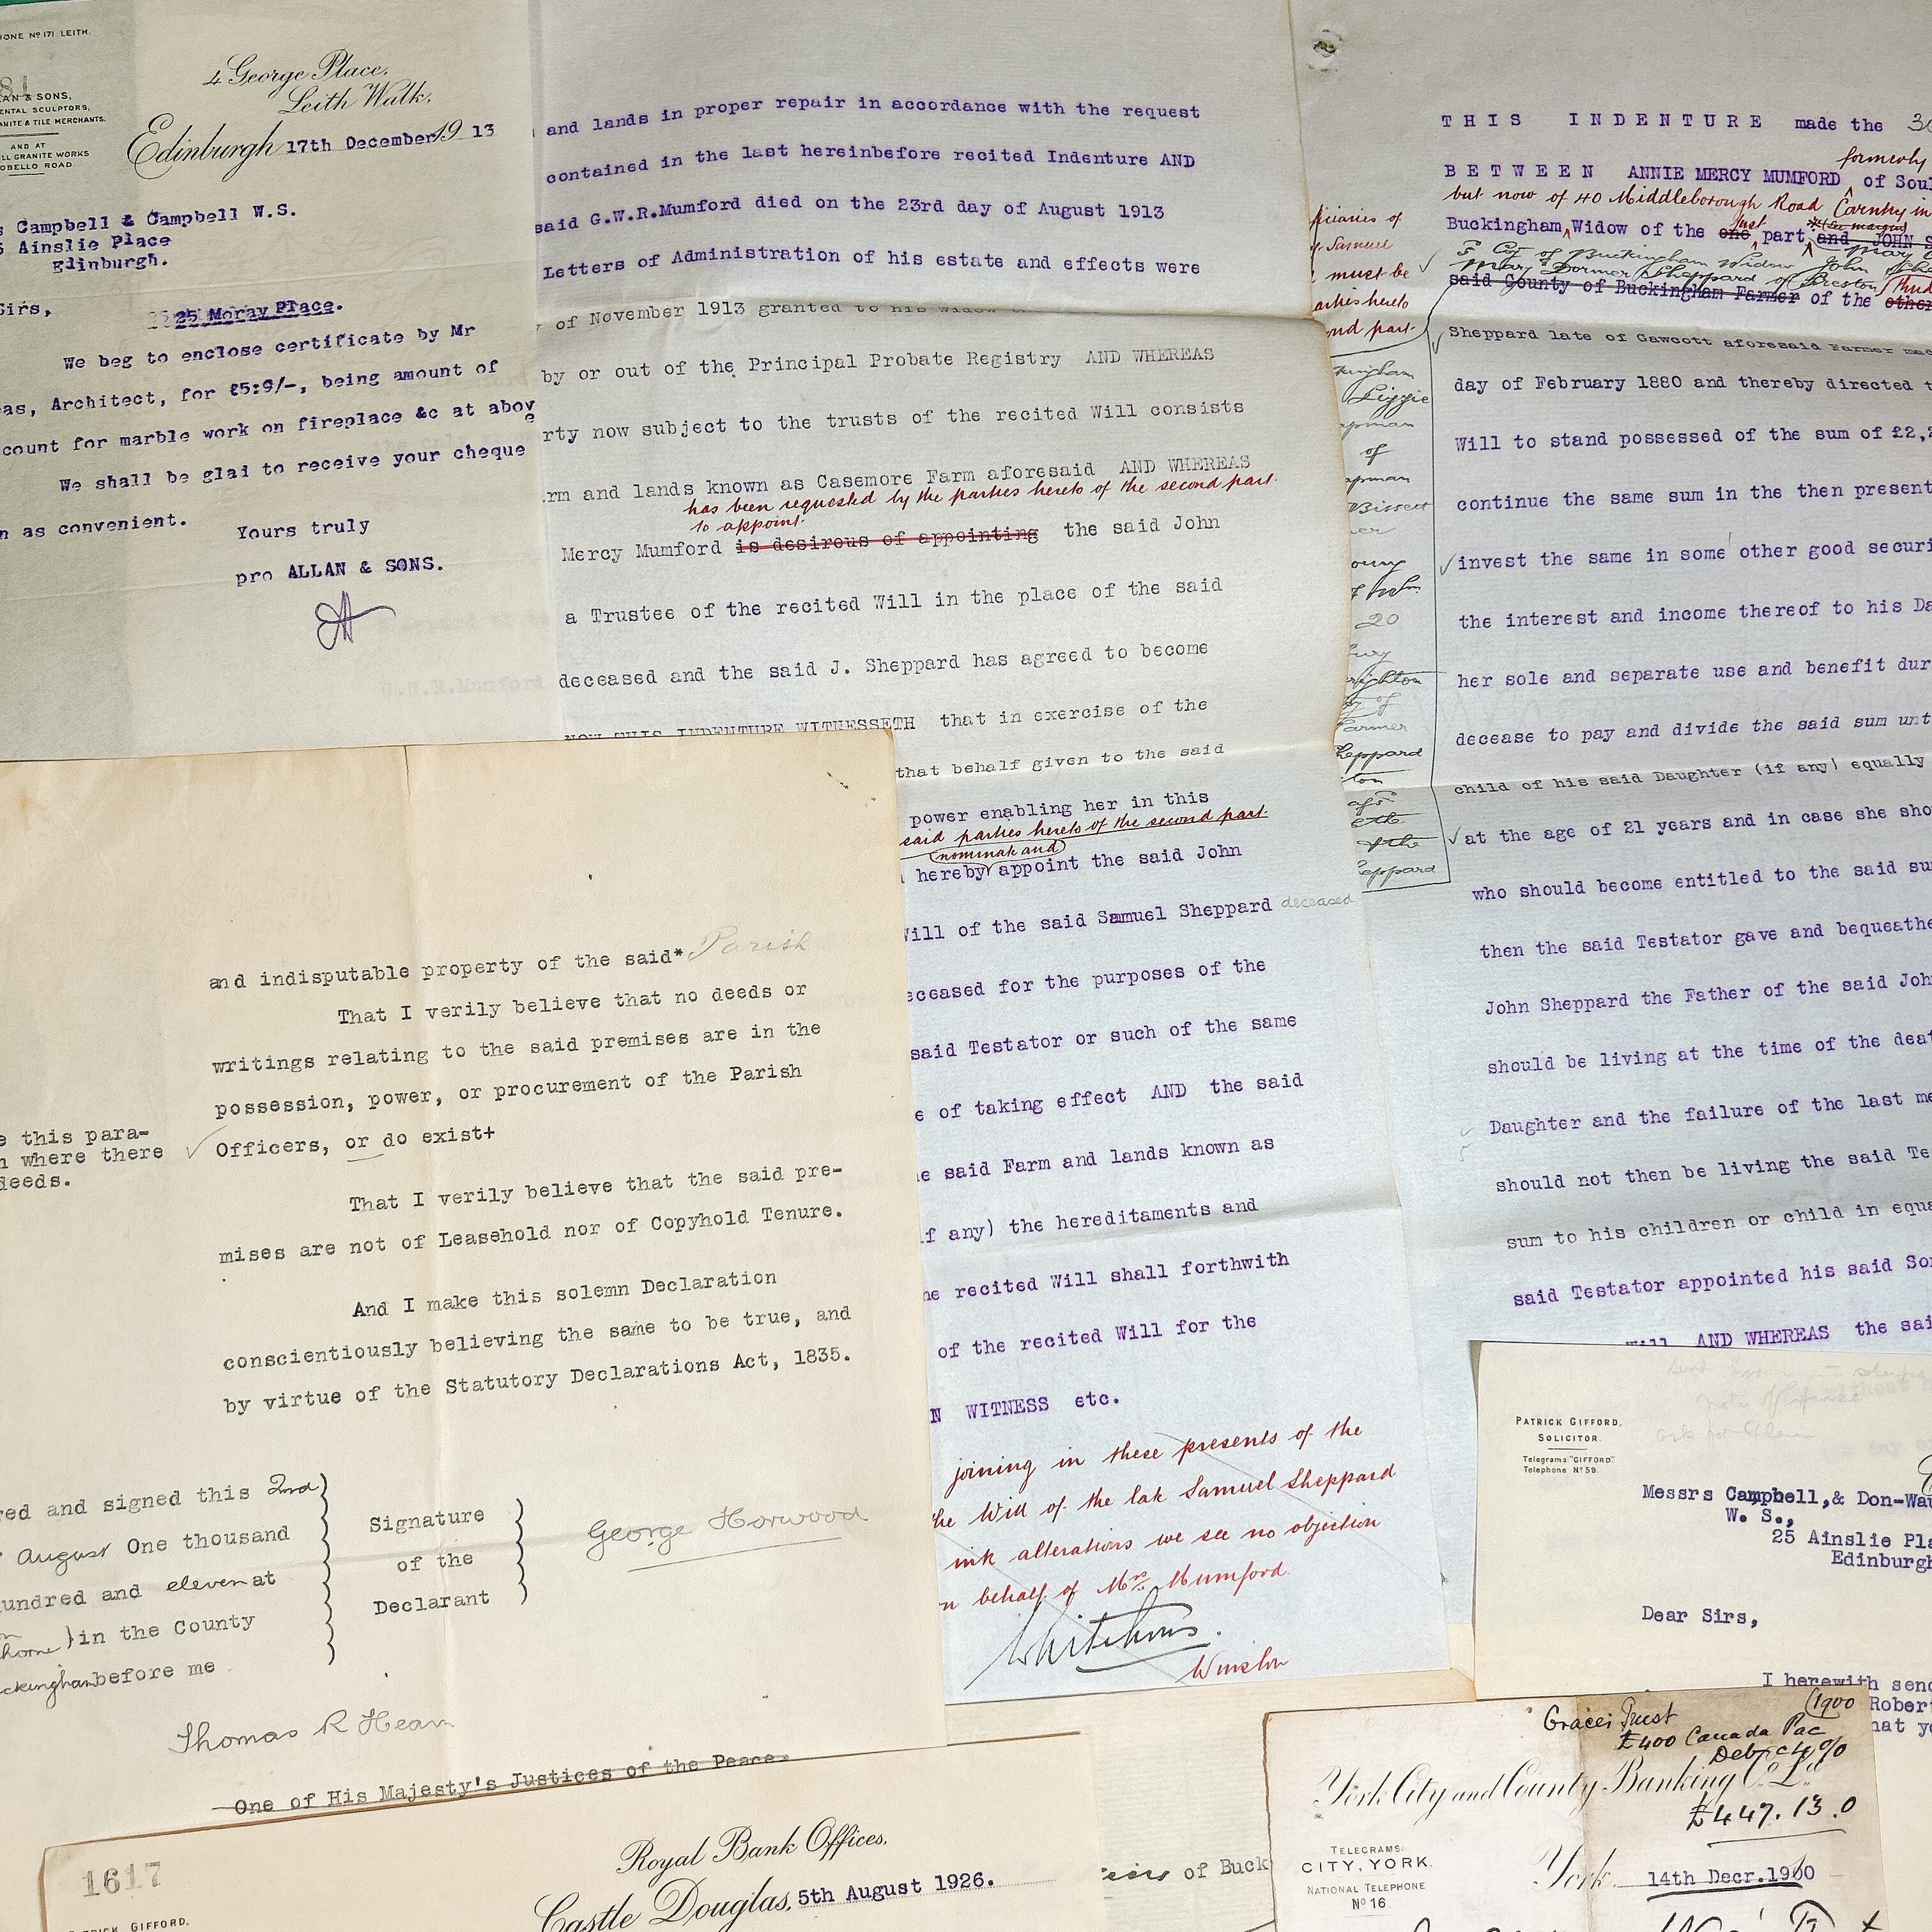 ONE Nº 171 LEITH.
AN & SONS,
ENTAL SCULPTORS,
NITE & TILE MERCHANTS.
AND AT
LL GRANITE WORKS
OBELLO ROAD.
4 George Place,
Leith Walk,
Edinburgh 17th December 1913
Campbell & Campbell W.S.
5 Ainslie Place
Edinburgh.
Sirs,
25 Moray Place.
We beg to enclose certificate by Mr
as, Architect, for £5:9/-, being amount of
count for marble work on fireplace &c at above
We shall be glad to receive your cheque
n as convenient.
Yours truly
pro ALLAN & SONS.
and lands in proper repair in accordance with the request
contained in the last hereinbefore recited Indenture AND
said G.W.R.Mumford died on the 23rd day of August 1913
Letters of Administration of his estate and effects were
of November 1913 granted to his widow
by or out of the Principal Probate Registry AND WHEREAS
rty now subject to the trusts of the recited Will consists
rm and lands known as Casemore Farm aforesaid AND WHEREAS
has been requested by the parties hereto of the second part.
to appoint.
Mercy Mumford is desirous of appointing the said John
a Trustee of the recited Will in the place of the said
deceased and the said J. Sheppard has agreed to become
NOW THIS INDENTURE WITNESSETH that in exercise of the
that behalf given to the said
power enabling her in this
said parties hereto of the second part.
nominate and
hereby appoint the said John
Will of the said Samuel Sheppard deceased
eceased for the purposes of the
said Testator or such of the same
e of taking effect AND the said
e said Farm and lands known as
if any) the hereditaments and
he recited Will shall forthwith
of the recited Will for the
N WITNESS etc.
joining in these presents of the
he Will of the late Samuel Sheppard
ink alterations we see no objection
n behalf of Mrs. Mumford.
Winslow
ficiaries of
Samuel
must be
arties hereto
nd part.
kingham
Lizzie
apman
of
apman
Bissett
er
oung
f John
20
righton
of
Farmer
heppard
ton
& the
eppard
THIS INDENTURE made the 30
formerly
BETWEEN ANNIE MERCY MUMFORD of Sou
but now of 40 Middleborough Road Coventry in
Buckingham, Widow of the one part and JOHN S
first
*(See margin)
Cty of Buckingham Widow John
Mary Dormer Sheppard of Preston
said County of Buckingham Farmer of the other
third
Sheppard late of Gawcott aforesaid Farmer
day of February 1880 and thereby directed
Will to stand possessed of the sum of £2,
continue the same sum in the then present
invest the same in some other good securi
the interest and income thereof to his Da
her sole and separate use and benefit dur
decease to pay and divide the said sum unt
child of his said Daughter (if any) equally
at the age of 21 years and in case she sho
who should become entitled to the said su
then the said Testator gave and bequeathe
John Sheppard the Father of the said Joh
should be living at the time of the deat
Daughter and the failure of the last me
should not then be living the said Te
sum to his children or child in equa
said Testator appointed his said Son
Will AND WHEREAS the sai
and indisputable property of the said* Parish
That I verily believe that no deeds or
writings relating to the said premises are in the
possession, power, or procurement of the Parish
Officers, or do exist+
e this para-
n where there
deeds.
That I verily believe that the said pre-
mises are not of Leasehold nor of Copyhold Tenure.
And I make this solemn Declaration
conscientiously believing the same to be true, and
by virtue of the Statutory Declarations Act, 1835.
red and signed this 2nd
August One thousand
undred and eleven at
in the County
ckingham before me
Signature
of the
Declarant
George Horwood
Thomas R Hearn
One of His Majesty's Justices of the Peace.
PATRICK GIFFORD,
SOLICITOR.
Telegrams "GIFFORD".
Telephone Nº 59.
Messrs Campbell,& Don-Wau
W. S.,
25 Ainslie Pla
Edinburgh
Dear Sirs,
I herewith send
Rober
hat yo
1617
TRICK GIFFORD,
Royal Bank Offices,
Castle Douglas, 5th August 1926.
of Buck
Graces Trust
(1900
£400 Canada Pac
Deb. 4%
York City and County Banking Co. Ld.
£447.13.0
TELEGRAMS:
CITY, YORK.
NATIONAL TELEPHONE
Nº 16
York, 14th Decr. 1900